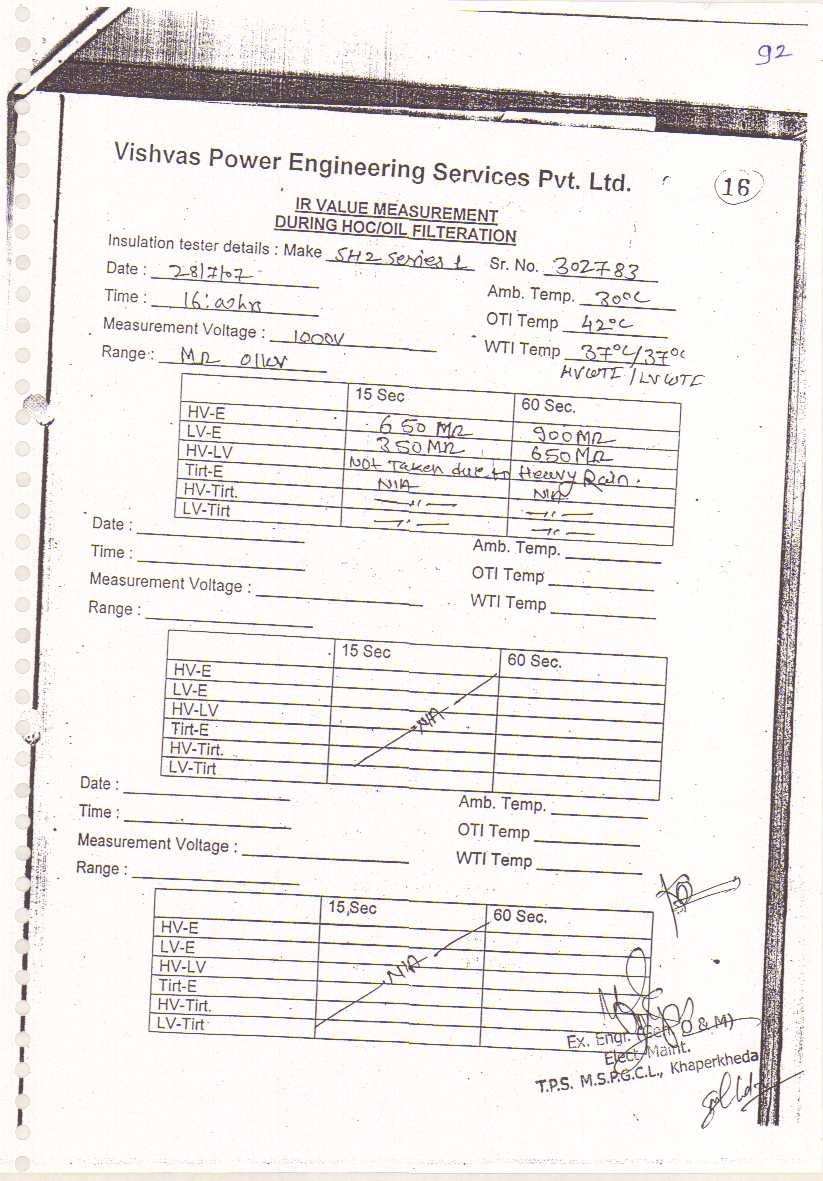 92
Vishvas Power Engineering Services Pvt. Ltd.
16
IR VALUE MEASUREMENT
DURING HOC/OIL FILTERATION
Insulation tester details : Make SH2 series 1 Sr. No. 302783
Date : 28/7/07 Amb. Temp. 30°C
Time : 16:00hrs OTI Temp 42°C
Measurement Voltage : 1000V WTI Temp 37°C/37°C
Range : MΩ HVWTI / LVWTI
15 Sec 60 Sec.
HV-E 650 MΩ 900 MΩ
LV-E 350 MΩ 650 MΩ
HV-LV Not Taken due to Heavy Rain.
Tirt-E N/A N/A
HV-Tirt. —〃— —〃—
LV-Tirt —〃— —〃—
Date : Amb. Temp.
Time : OTI Temp
Measurement Voltage : WTI Temp
Range :
15 Sec 60 Sec.
HV-E
LV-E
HV-LV N/A
Tirt-E
HV-Tirt.
LV-Tirt
Date : Amb. Temp.
Time : OTI Temp
Measurement Voltage : WTI Temp
Range :
15 Sec 60 Sec.
HV-E
LV-E
HV-LV N/A
Tirt-E
HV-Tirt.
LV-Tirt
Ex. Engr. O & M)
Elect. Maint.
T.P.S. M.S.P.G.C.L., Khaperkheda